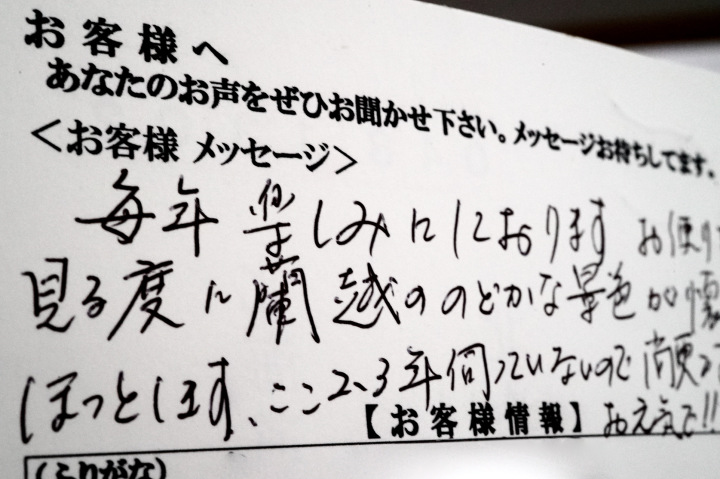 お客様へ
あなたのお声をぜひお聞かせ下さい。メッセージお待ちしてます。
＜お客様 メッセージ＞
毎年楽しみにしております お便り
見る度に蘭越ののどかな景色が懐
ほっとします、ここ2、3年伺っていないので尚更
【お客様情報】 お元気で!!
(ふりがな)